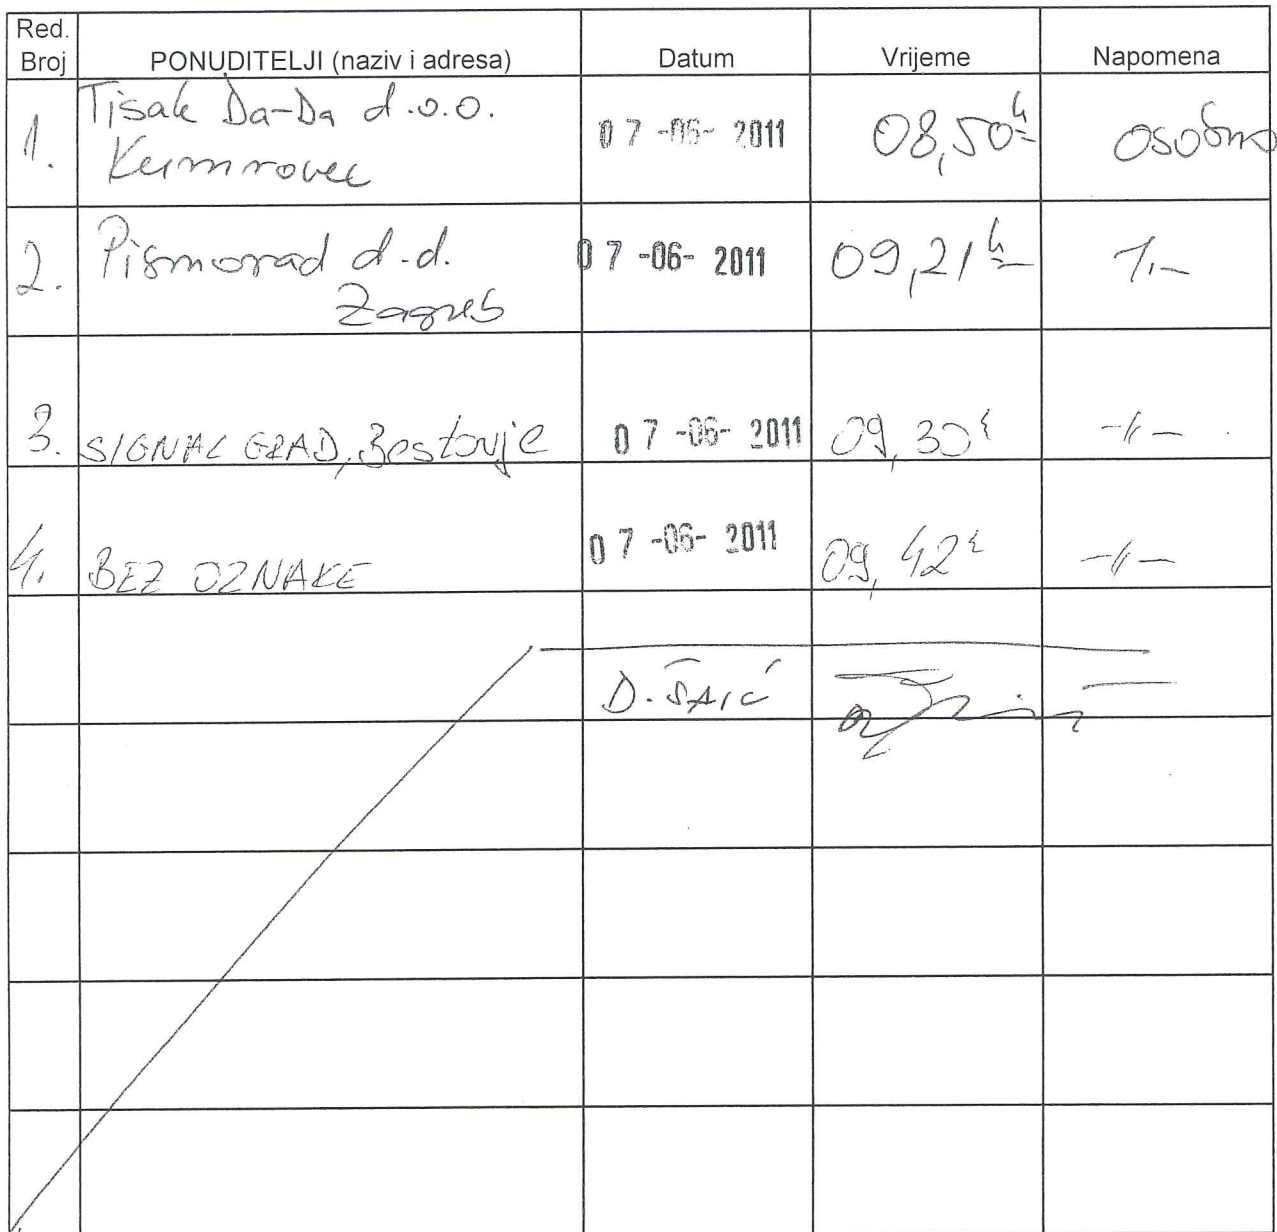 Red. Broj PONUDITELJI (naziv i adresa) Datum Vrijeme Napomena
1. Tisak Da-Da d.o.o. 07-06-2011 08,50h osobno
Kumrovec
2. Pismorad d.d. 07-06-2011 09,21h
Zagreb
3. SIGNAL GRAD, Bestovje 07-06-2011 09,30h -//-
4. BEZ OZNAKE 07-06-2011 09,42h -//-
D. ŠAIĆ